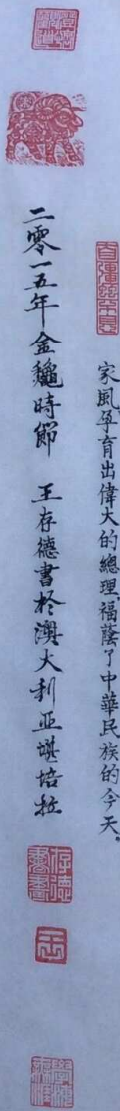 家風孕育出偉大的總理，福蔭了中華民族的今天。
二零一五年金龝時節 王存德書於澳大利亚堪培拉
存德書畫